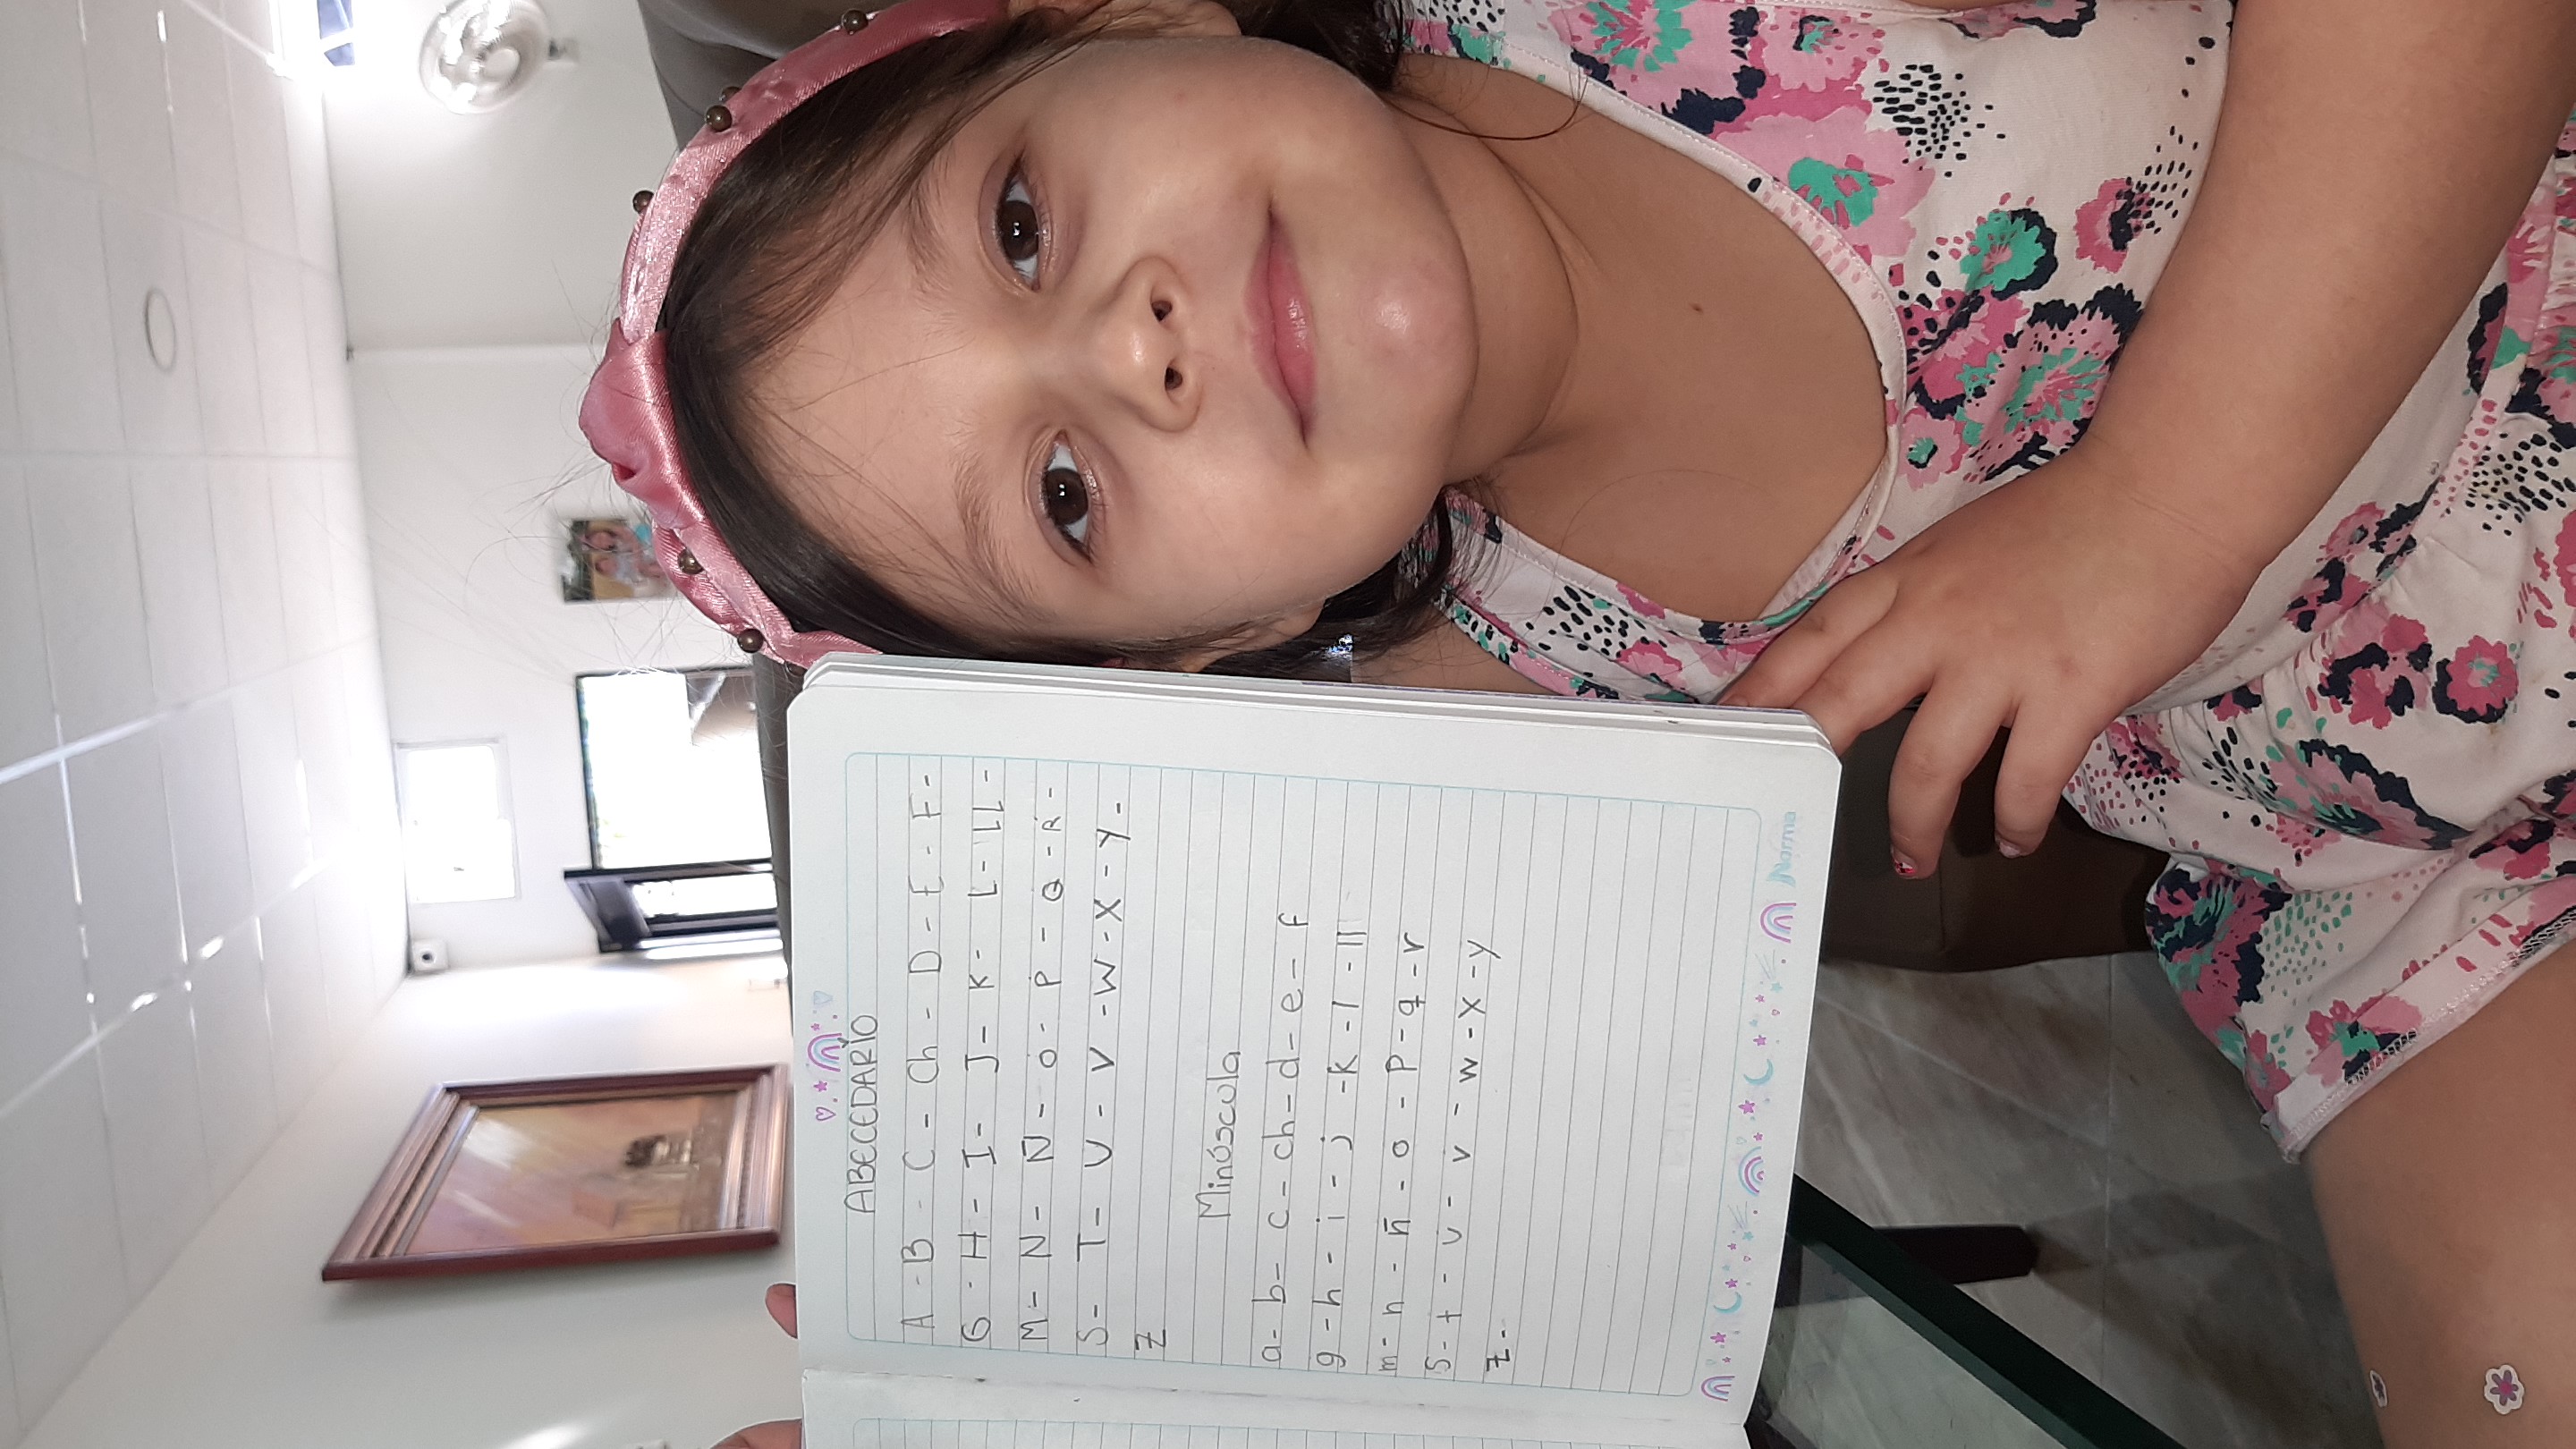 ABECEDARIO
A - B - C - Ch - D - E - F -
G - H - I - J - K - L - LL -
M - N - Ñ - O - P - Q - R -
S - T - U - V - W - X - Y -
Z
Minúscula
a - b - c - ch - d - e - f
g - h - i - j - k - l - ll
m - n - ñ - o - p - q - r
s - t - u - v - w - x - y
z -
Norma